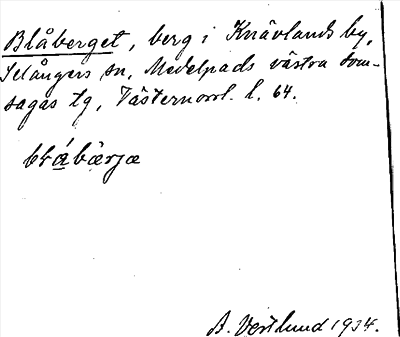 Blåberget, berg i Knävlands by,
Selångers sn, Medelpads västra dom-
sagas tg, Västernorrl. l. 64.
blá̱bærjæ
B. Vestlund 1934.